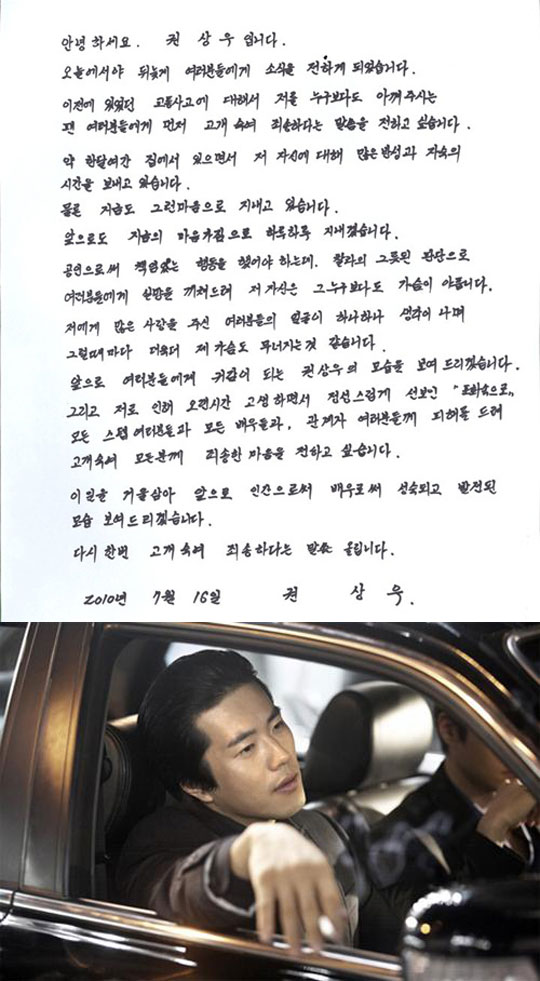 안녕하세요. 권 상 우 입니다.
오늘에서야 뒤늦게 여러분들에게 소식을 전하게 되었습니다.
이전에 있었던 교통사고에 대해서 저를 누구보다도 아껴주시는
팬 여러분들에게 먼저 고개 숙여 죄송하다는 말씀을 전하고 싶습니다.
약 한달여간 집에서 있으면서 저 자신에 대해 많은반성과 자숙의
시간을 보내고 있습니다.
물론 지금도 그런마음으로 지내고 있습니다.
앞으로도 지금의 마음가짐으로 하루하루 지내겠습니다.
공인으로써 책임있는 행동을 했어야 하는데. 찰라의 그릇된 판단으로
여러분들에게 실망을 끼쳐드려 저 자신은 그누구보다도 가슴이 아픕니다.
저에게 많은 사랑을 주신 여러분들의 얼굴이 하나하나 생각이 나며
그럴때마다 더욱더 제 가슴도 무너지는것 같습니다.
앞으로 여러분들에게 귀감이 되는 권상우의 모습을 보여 드리겠습니다.
그리고 저로 인해 오랜시간 고생하면서 정성스럽게 선보인 "포화속으로"
모든 스텝여러분들과 모든 배우들과, 관계자 여러분들께 피해를 드려
고개숙여 모든분께 죄송한 마음을 전하고 싶습니다.
이 일을 거울삼아 앞으로 인간으로써 배우로써 성숙되고 발전된
모습 보여드리겠습니다.
다시 한번 고개 숙여 죄송하다는 말씀 올립니다.
2010년 7월 16일 권 상 우.